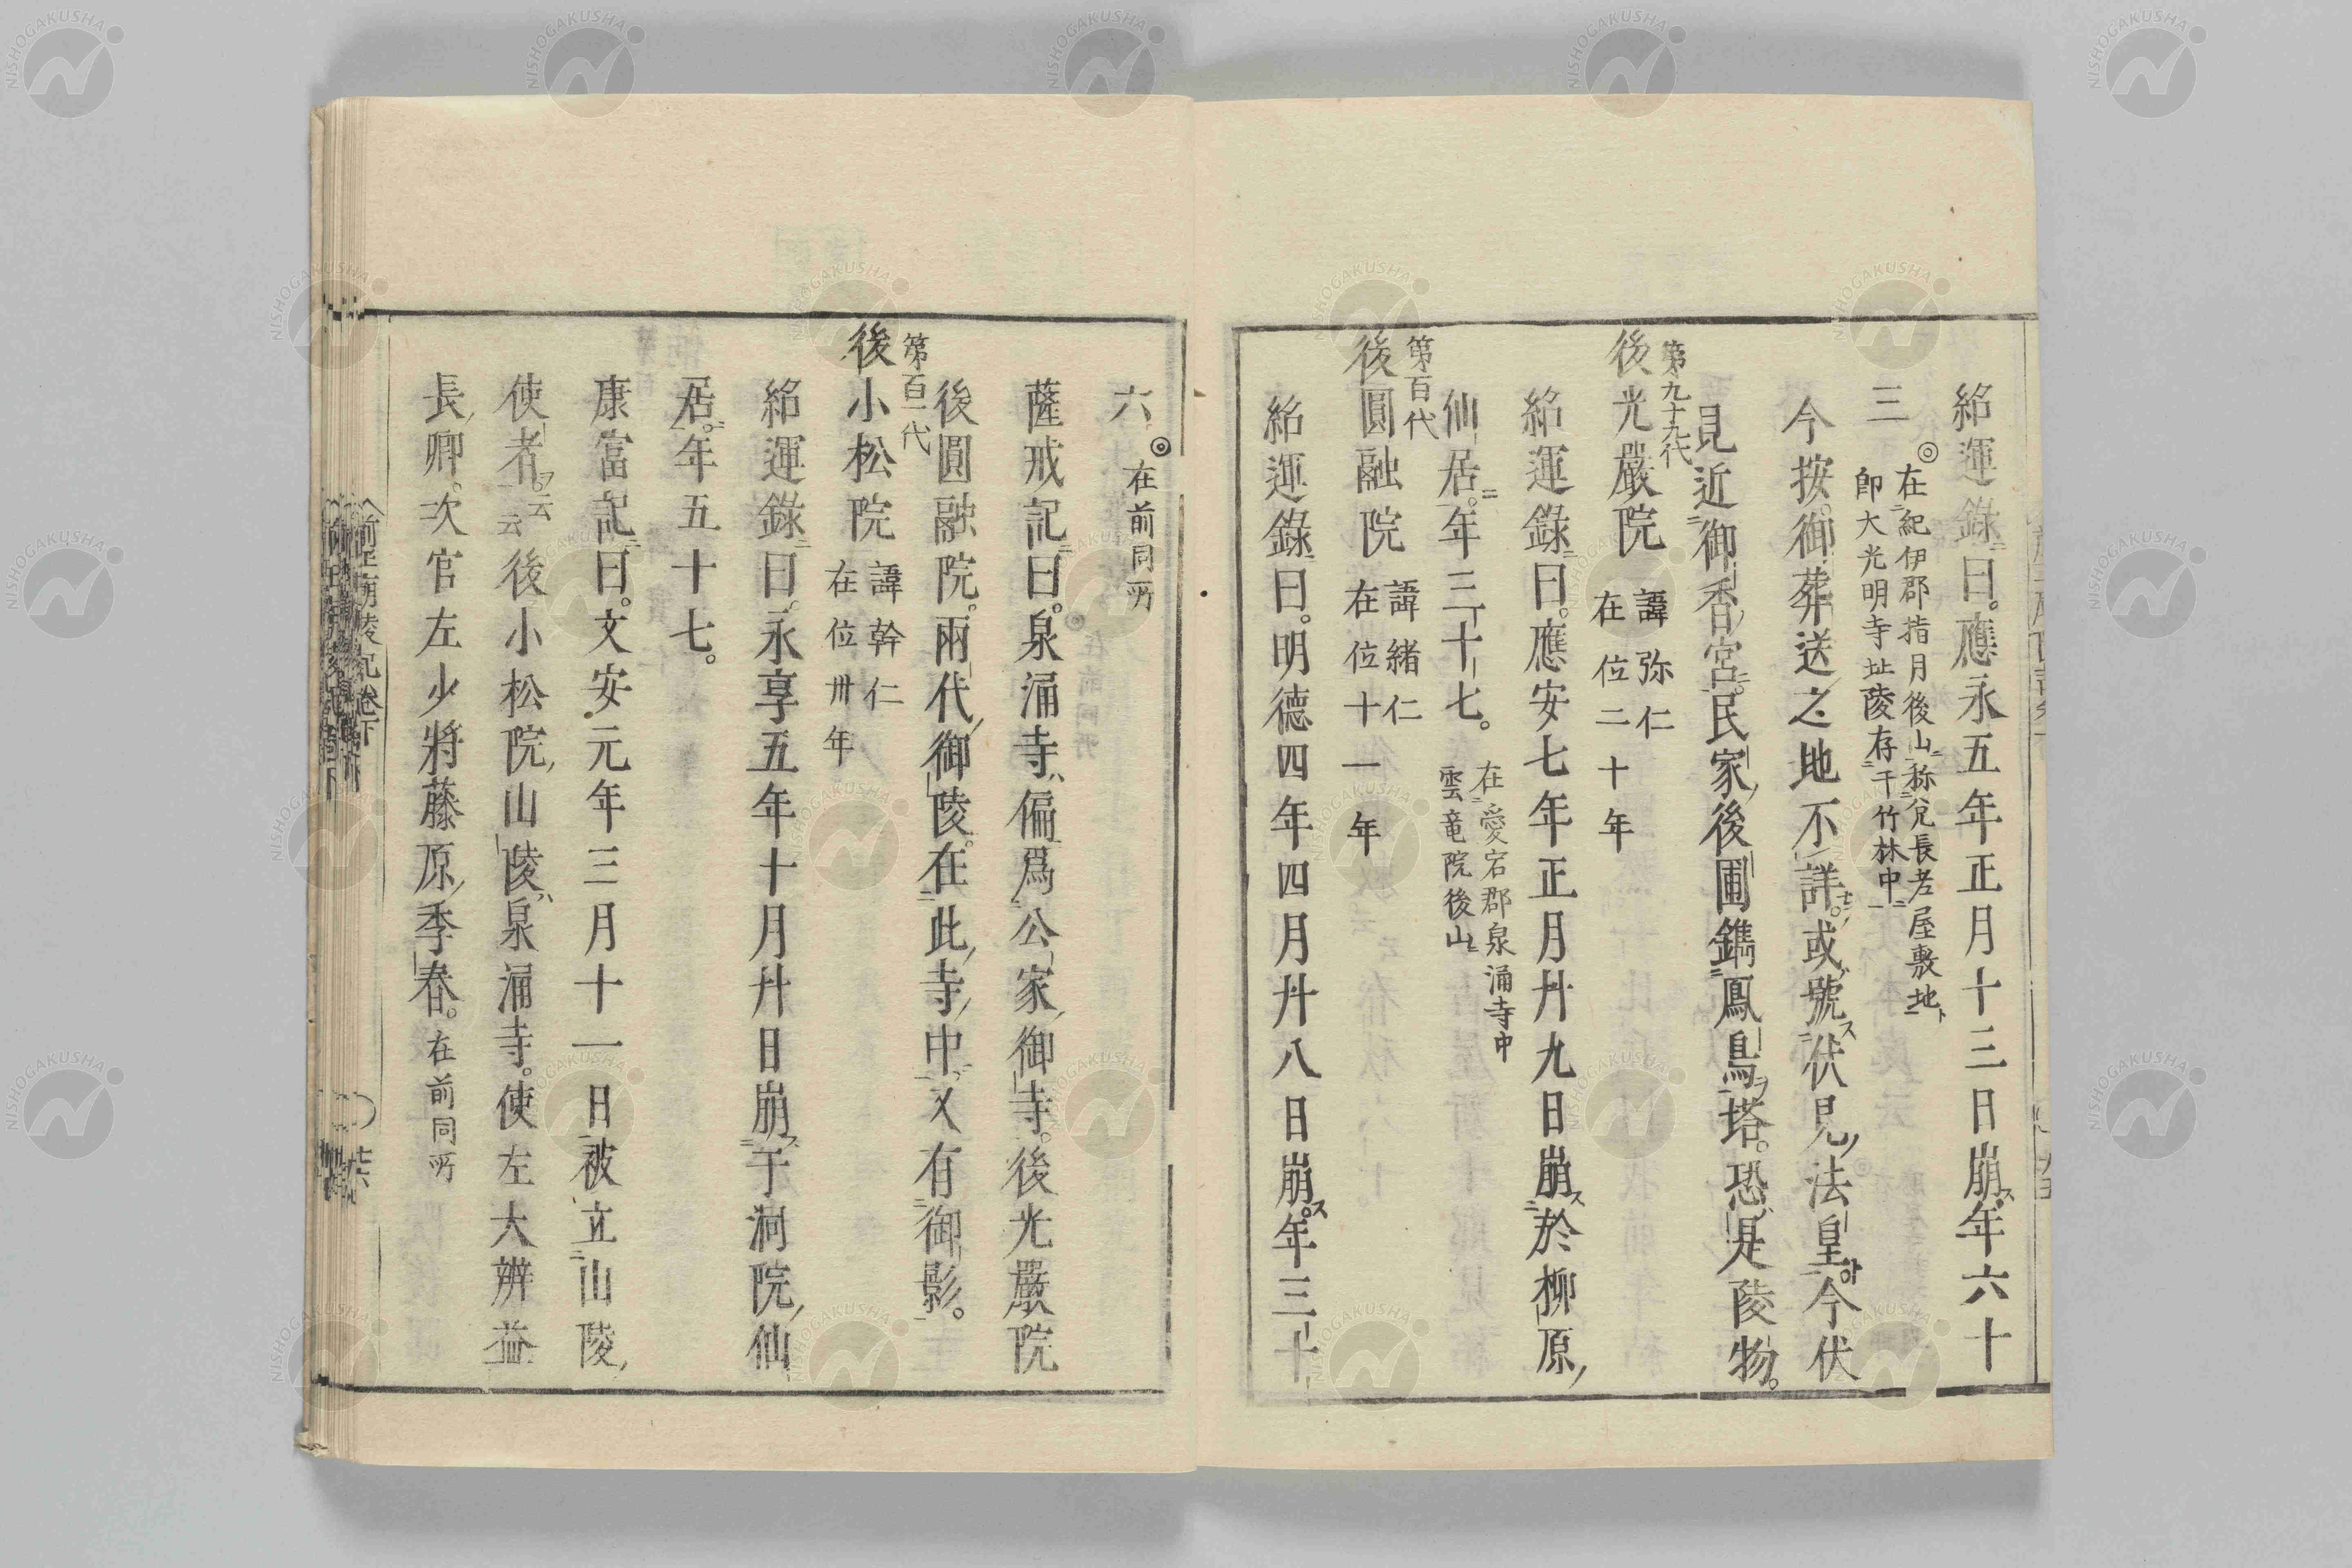 紹運錄曰。應永五年正月十三日崩ス年六十
三
◎在紀伊郡指月後山ニ称兌長老屋敷地ト
即大光明寺址陵存ニ于竹林中ニ
今按御葬送之地不詳或號ス伏見法皇今伏
見近御香宮民家後圃鐫鳳鳥ヲ塔。恐是陵物。
第九十九代
後光嚴院
諱弥仁
在位二十年
紹運錄曰。應安七年正月廾九日崩ス於柳原
仙居。年三十七。
在愛宕郡泉涌寺中
雲竜院後山
第百代
後圓融院
諱緒仁
在位十一年
紹運錄曰。明德四年四月廾八日崩ス。年三十
六。
◎在前同所
薩戒記曰。泉涌寺偏爲公家御寺。後光嚴院
後圓融院。兩代御陵。在此寺中又有御影。
第百一代
後小松院
諱幹仁
在位卅年
紹運錄曰。永享五年十月廾日崩于洞院仙
居。年五十七。
康富記曰。文安元年三月十一日被立山陵
使者。云云後小松院山陵泉涌寺。使左大辨益
長卿。次官左少將藤原季春。
在前同所
前王廟陵記卷下
NISHOGAKUSHA